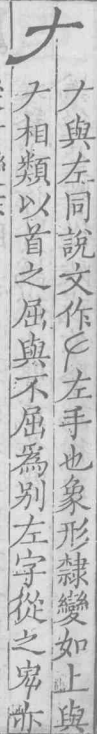 𠂇
𠂇與左同說文作𠂇左手也象形隸變如上與
ナ相類以首之屈與不屈爲别左字從之𡧛亦